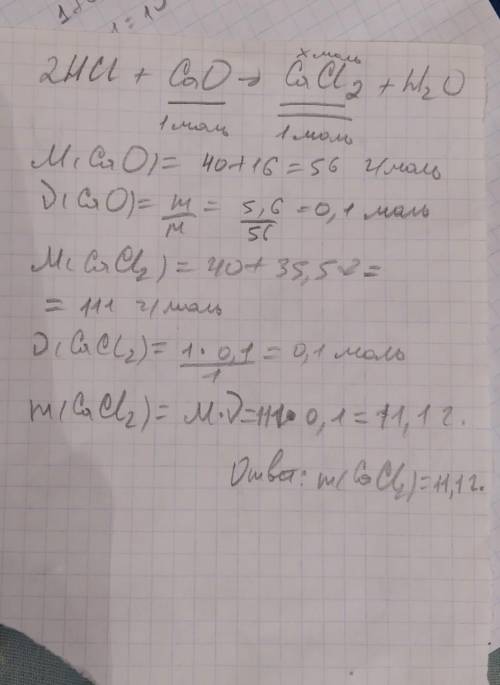 x моль
2HCl + CaO → CaCl2 + H2O
1 моль 1 моль
M(CaO) = 40+16 = 56 г/моль
ν(CaO) = m/M = 5,6/56 = 0,1 моль
M(CaCl2) = 40+35,5·2 =
= 111 г/моль
ν(CaCl2) = 1·0,1/1 = 0,1 моль
m(CaCl2) = M·ν = 111·0,1 = 11,1 г.
Ответ: m(CaCl2) = 11,1 г.